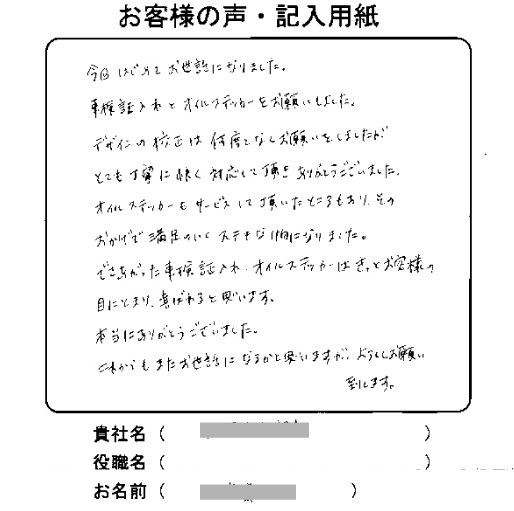 お客様の声・記入用紙
今回はじめてお世話になりました。
車検証入れとオイルステッカーをお願いしました。
デザインの校正は何度となくお願いをしましたが
とても丁寧に快く対応して頂きありがとうございました。
オイルステッカーもサービスして頂いたところもあり、その
おかげで満足のいくステキな物になりました。
できあがった車検証入れ、オイルステッカーはきっとお客様の
目にとまり、喜ばれると思います。
本当にありがとうございました。
これからもまたお世話になるかと思いますが、どうぞよろしくお願い
致します。
貴社名（ ）
役職名（ ）
お名前（ ）